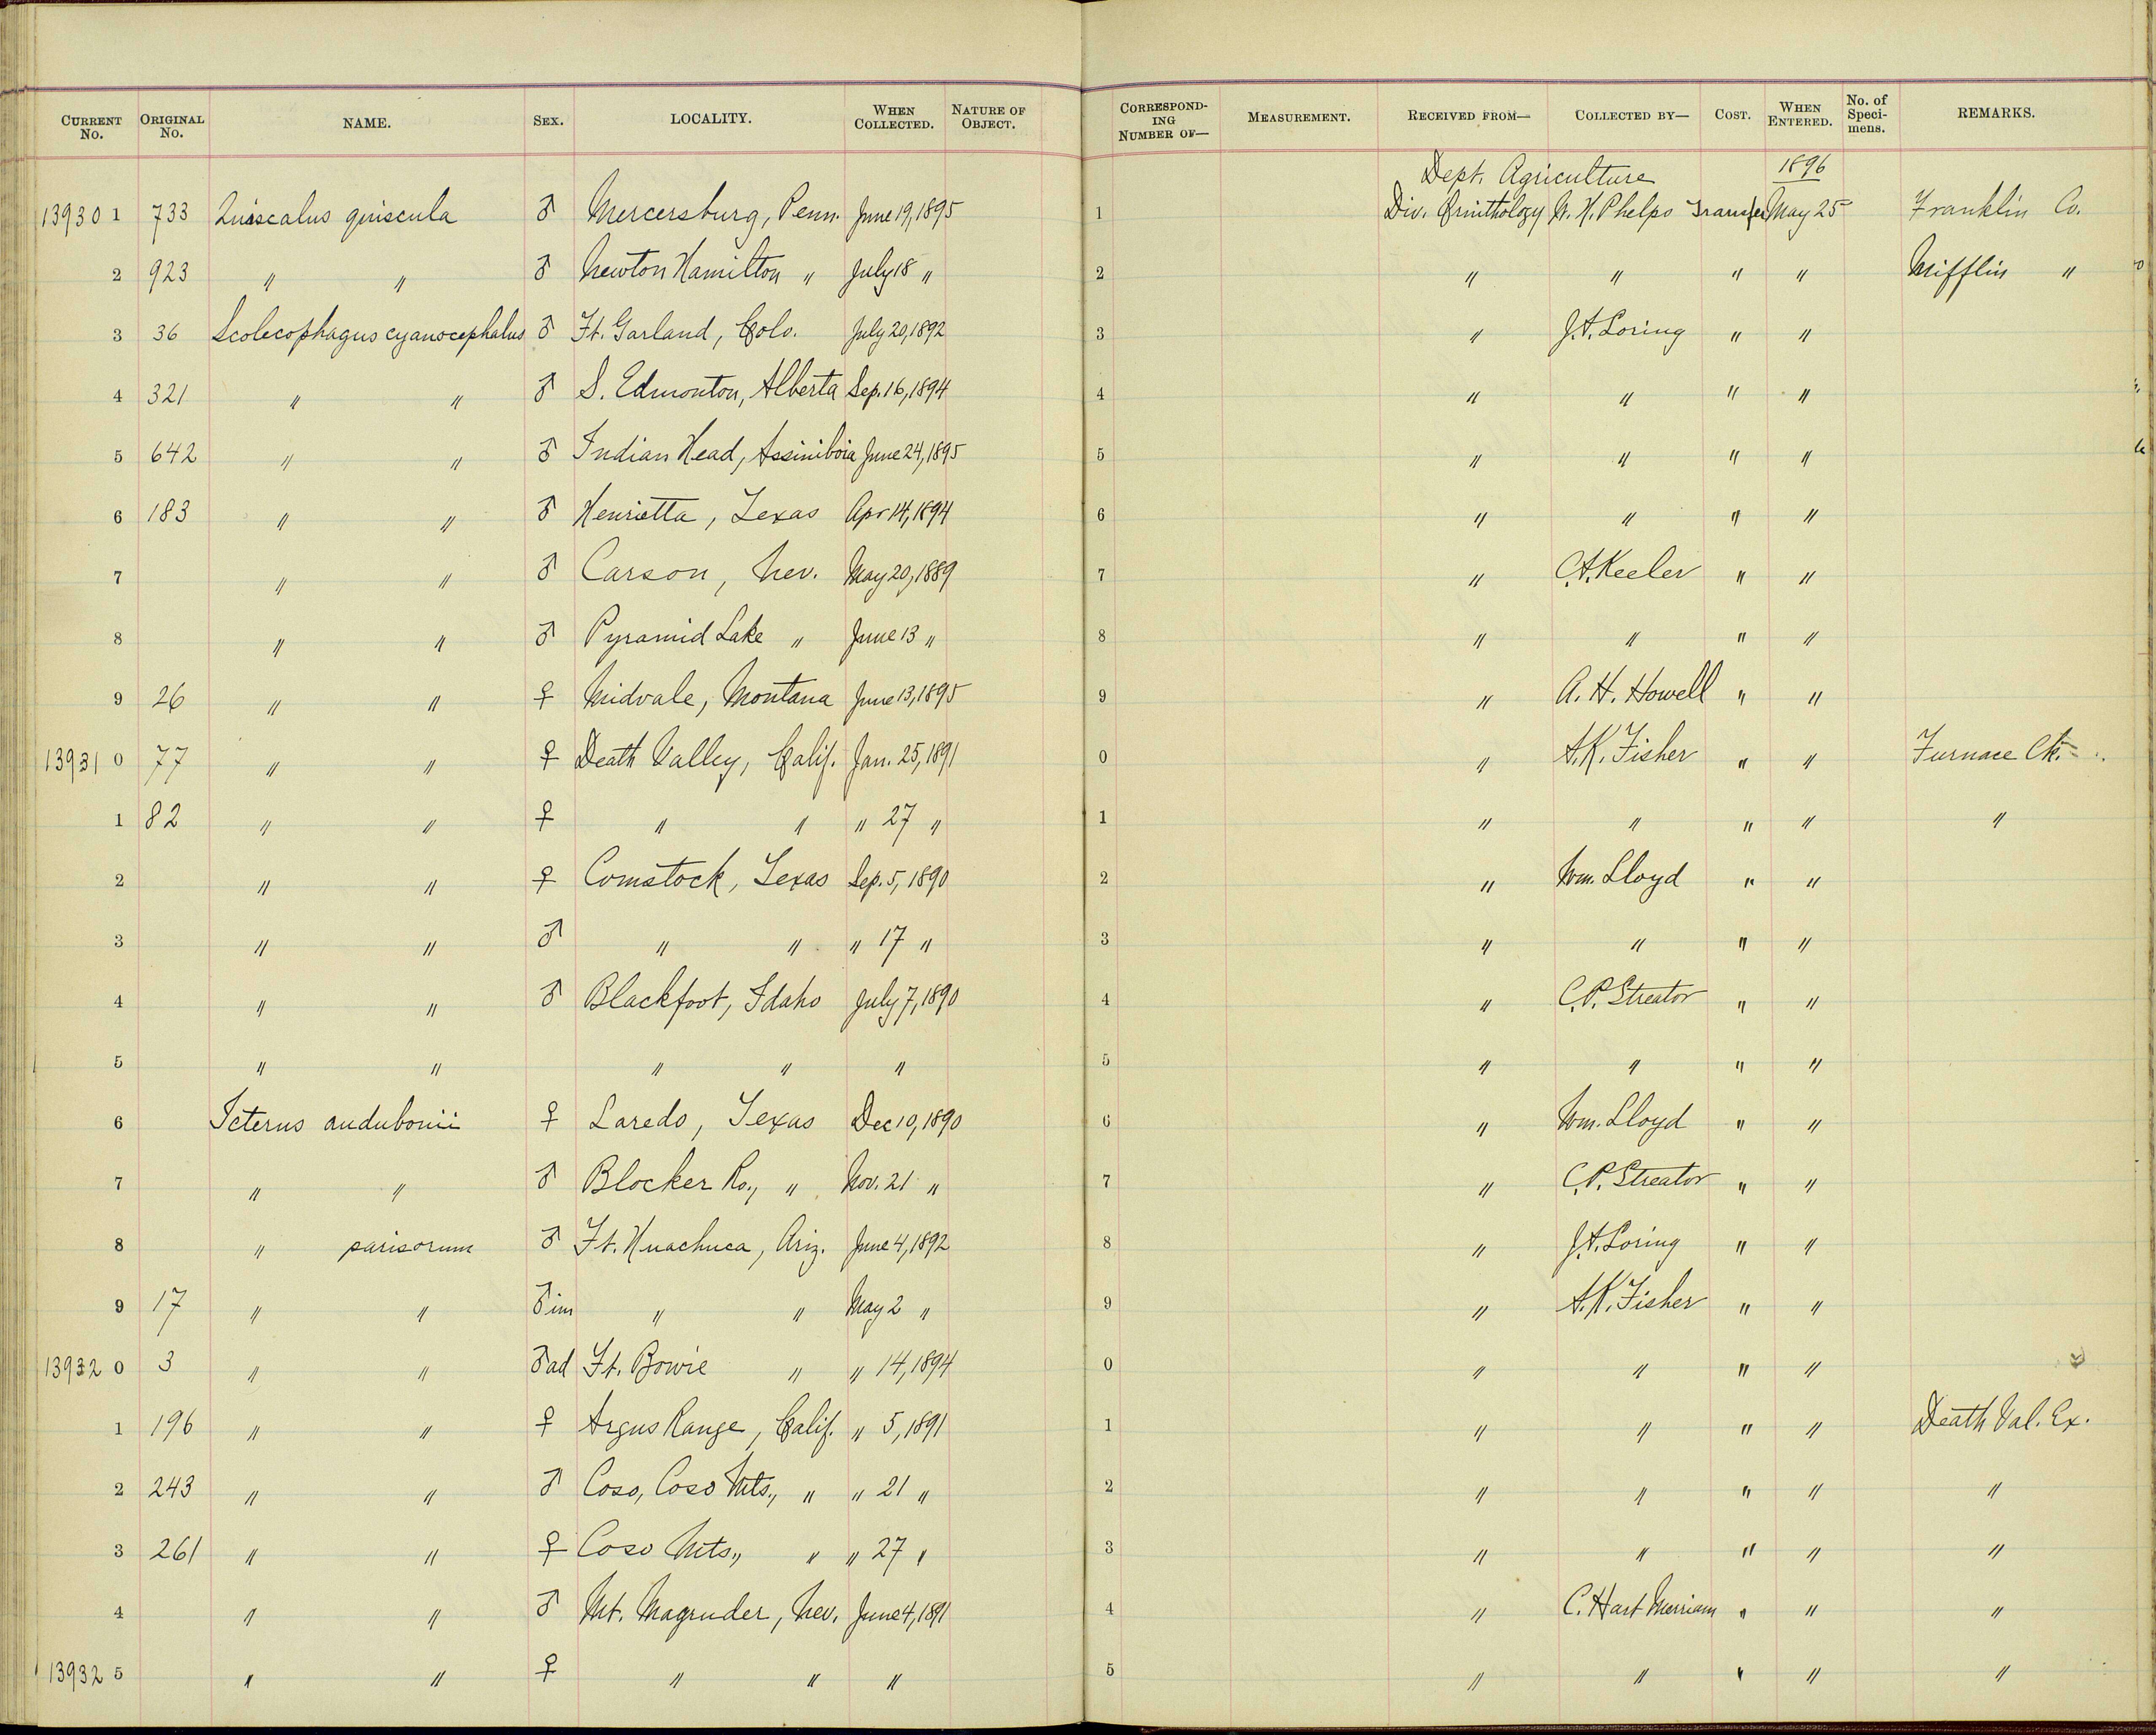 CURRENT No. ORIGINAL No. NAME. SEX. LOCALITY. WHEN COLLECTED. NATURE OF OBJECT. CORRESPONDING NUMBER OF— MEASUREMENT. RECEIVED FROM— COLLECTED BY— COST. WHEN ENTERED. No. of Specimens. REMARKS.
Dept. Agriculture 1896
13930 1 733 Quiscalus quiscula ♂ Mercersburg, Penn. June 19, 1895 1 Div. Ornithology W. H. Phelps Transfer May 25 Franklin Co.
2 923 " " ♂ Newton Hamilton " July 18 " 2 " " " " Mifflin "
3 36 Scolecophagus cyanocephalus ♂ Ft. Garland, Colo. July 20, 1892 3 " J.A. Loring " "
4 321 " " ♂ S. Edmonton, Alberta Sep. 16, 1894 4 " " " "
5 642 " " ♂ Indian Head, Assiniboia June 24, 1895 5 " " " "
6 183 " " ♂ Henrietta, Texas Apr 14, 1894 6 " " " "
7 " " ♂ Carson, Nev. May 20, 1889 7 " C.A. Keeler " "
8 " " ♂ Pyramid Lake " June 13 " 8 " " " "
9 26 " " ♀ Midvale, Montana June 13, 1895 9 " A. H. Howell " "
13931 0 77 " " ♀ Death Valley, Calif. Jan. 25, 1891 0 " A.K. Fisher " " Furnace Ck.
1 82 " " ♀ " " " 27 " 1 " " " " "
2 " " ♀ Comstock, Texas Sep. 5, 1890 2 " Wm. Lloyd " "
3 " " ♂ " " " 17 " 3 " " " "
4 " " ♂ Blackfoot, Idaho July 7, 1890 4 " C.P. Streator " "
5 " " " " " 5 " " " "
6 Icterus audubonii ♀ Laredo, Texas Dec 10, 1890 6 " Wm. Lloyd " "
7 " " ♂ Blocker Ro., " Nov. 21 " 7 " C.P. Streator " "
8 " parisorum ♂ Ft. Huachuca, Ariz. June 4, 1892 8 " J.A. Loring " "
9 17 " " ♂ im " " May 2 " 9 " A.K. Fisher " "
13932 0 3 " " ♂ ad Ft. Bowie " " 14, 1894 0 " " " "
1 196 " " ♀ Argus Range, Calif. " 5, 1891 1 " " " " Death Val. Ex.
2 243 " " ♂ Coso, Coso Mts., " " 21 " 2 " " " " "
3 261 " " ♀ Coso Mts., " " 27 " 3 " " " " "
4 " " ♂ Mt. Magruder, Nev. June 4, 1891 4 " C. Hart Merriam " " "
13932 5 " " ♀ " " " 5 " " " " "